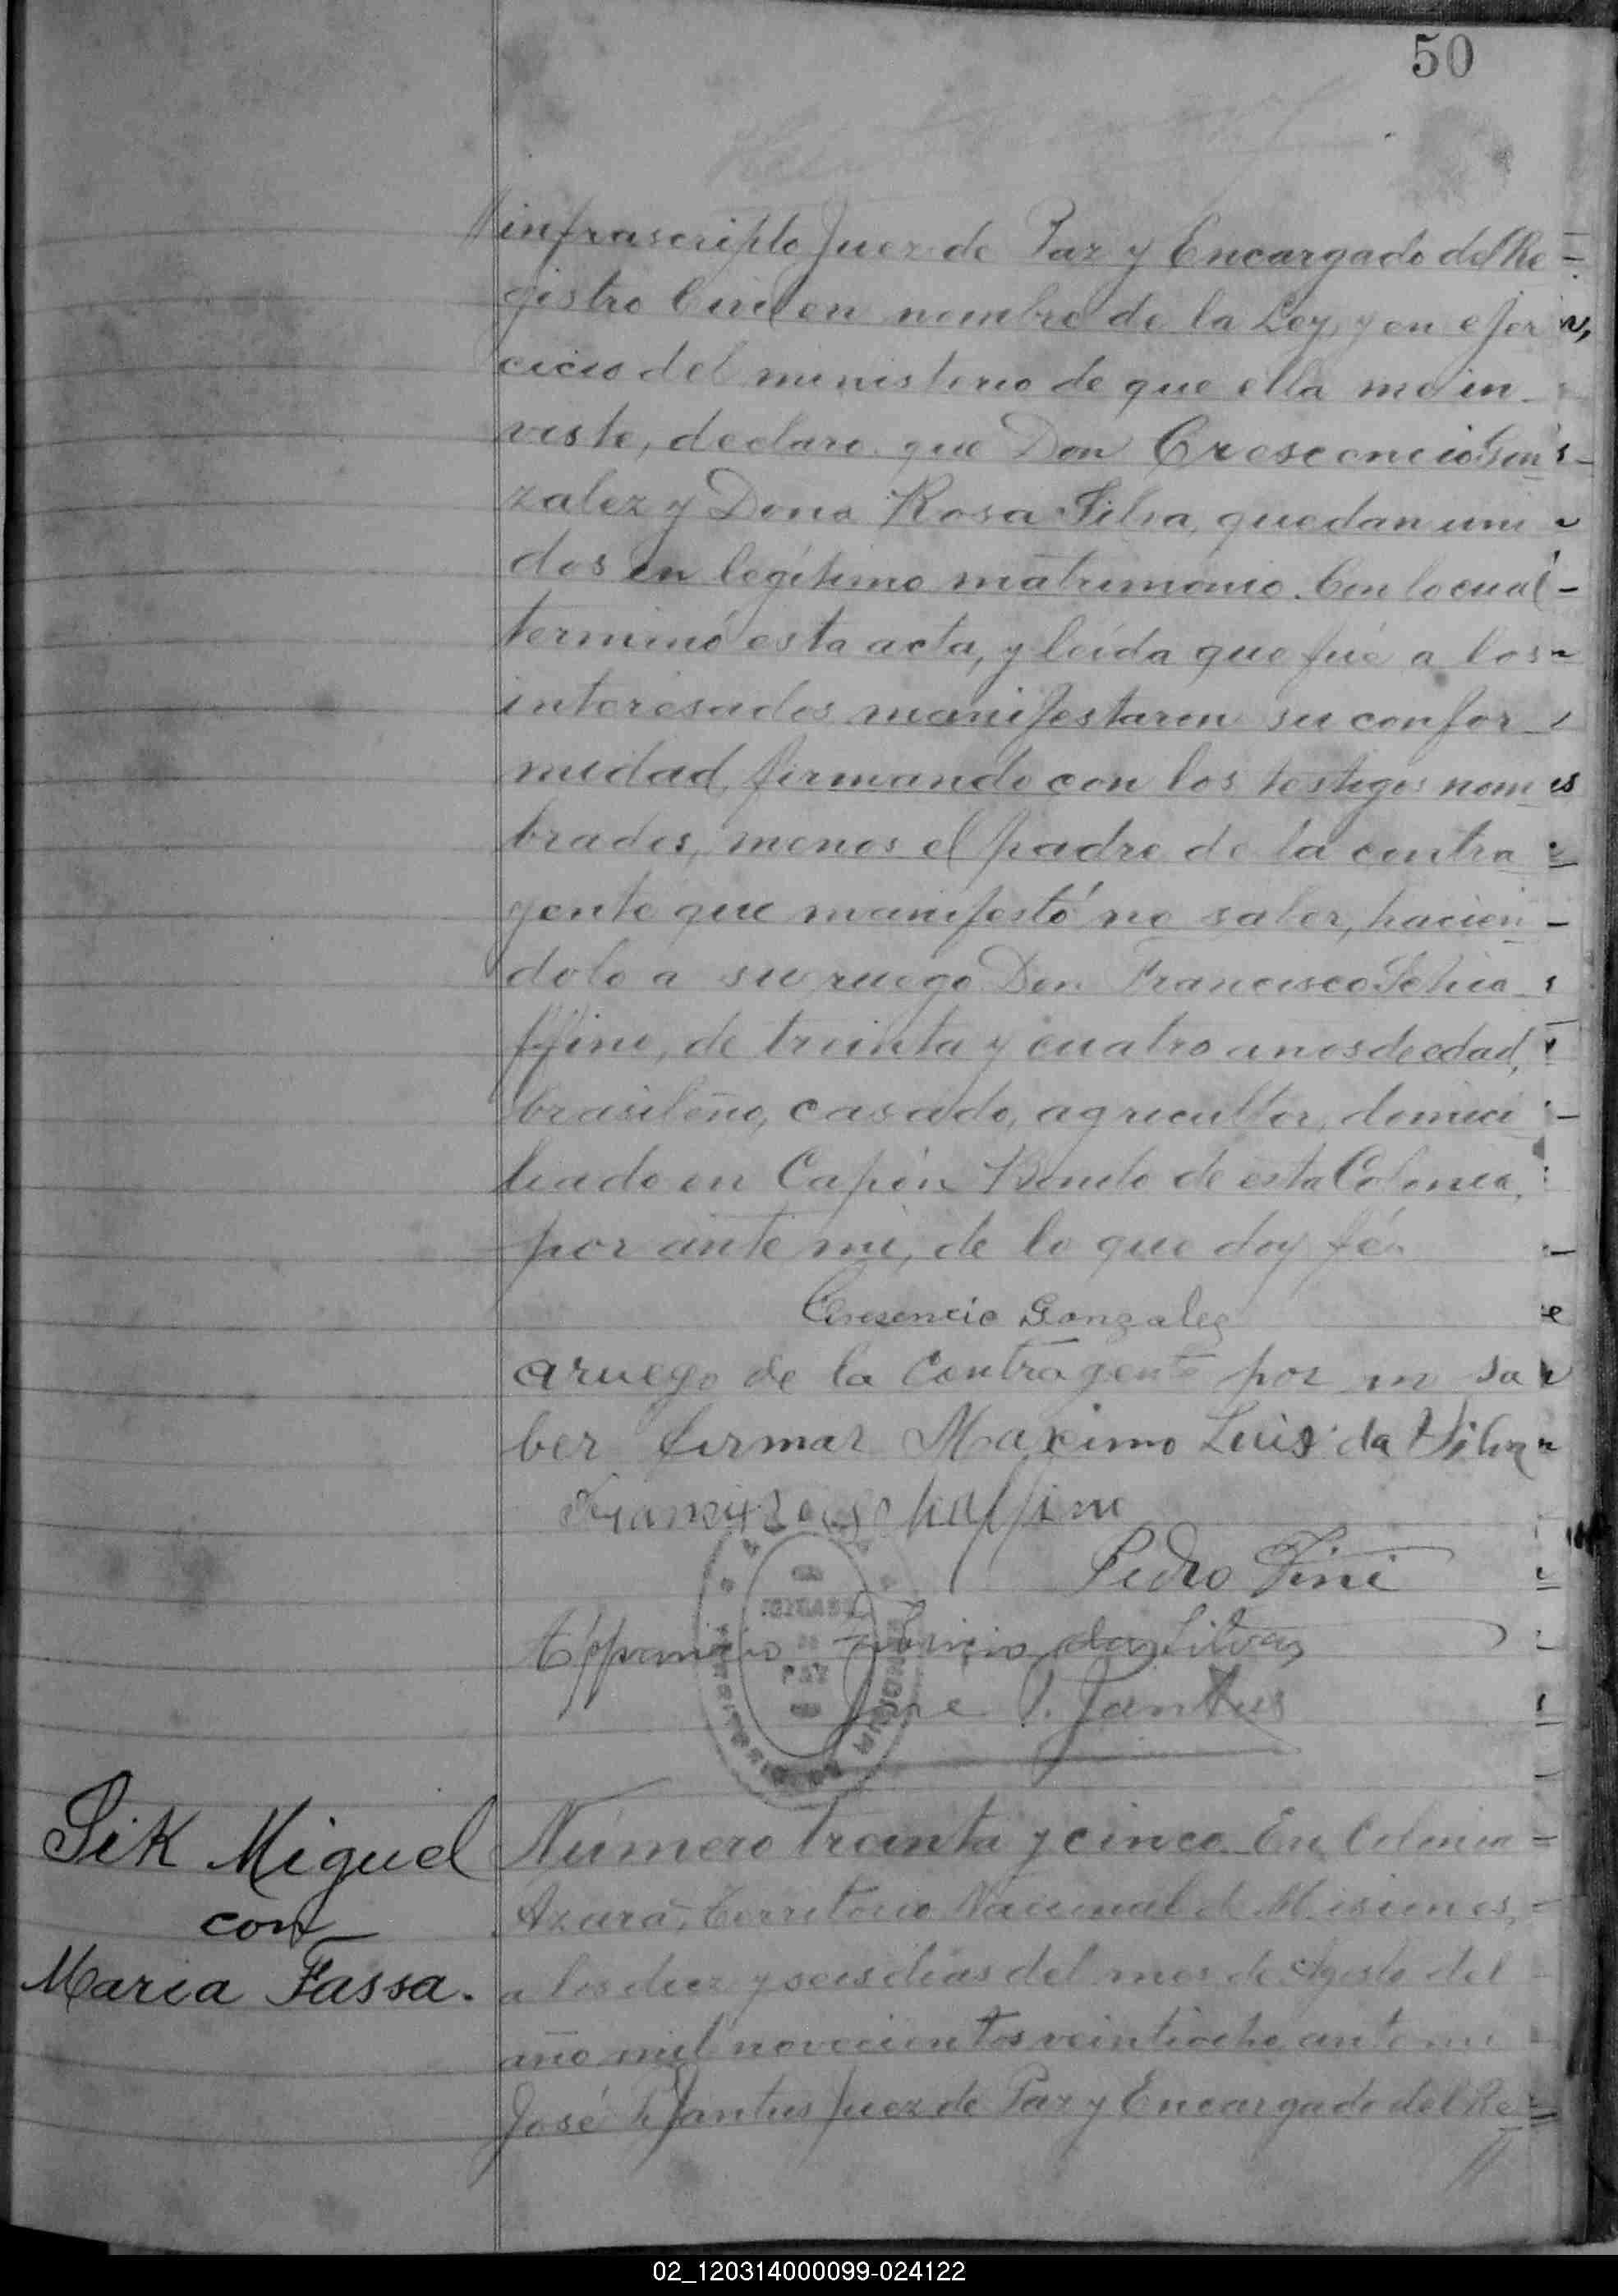 50
infrascripto Juez de Paz y Encargado del Re
gistro Civil en nombre de la Ley, y en ejer
cicio del ministerio de que ella me in
viste, declaro que Don Crescencio Gon
zalez y Dona Rosa Silva, quedan uni
dos en legítimo matrimonio. Con lo cual
terminó esta acta, y leída que fué a los
interesados manifestaron su confor
midad, firmando con los testigos nom
brados, menos el padre de la contra
yente que manifestó no saber, hacien
dolo a su ruego Don Francisco Schia
ffini, de treinta y cuatro años de edad,
brasileño, casado, agricultor, domici
liado en Capón Bonito de esta Colonia,
por ante mi, de lo que doy fé.
Cresencio Gonzalez
a ruego de la Contragente por no sa
ber firmar Maximo Luis da Silva
Pedro Fini
da Silva
Jose P. Jantus
JUZGADO
DE
PAZ
Sik Miguel
con
Maria Fassa.
Número treinta y cinco. En Colonia
Azara, Territorio Nacional de Misiones,
a los diez y seis dias del mes de Agosto del
año mil novecientos veintiocho ante mi
José P. Jantus Juez de Paz y Encargado del Re
02_120314000099-024122